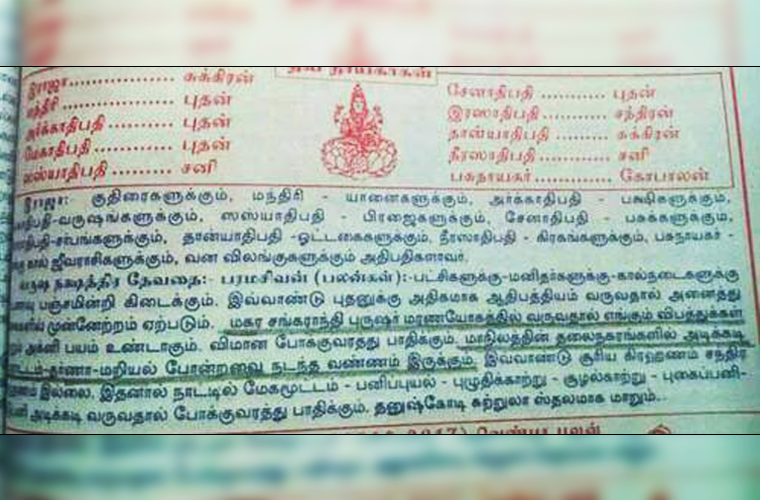 இராஜா................ சுக்கிரன்
மந்திரி ............... புதன்
அர்க்காதிபதி .......... புதன்
மேகாதிபதி ........... புதன்
ஸஸ்யாதிபதி ......... சனி
சேனாதிபதி ........... புதன்
இரஸாதிபதி .......... சந்திரன்
தான்யாதிபதி ......... சுக்கிரன்
நீரஸாதிபதி .......... சனி
பசுநாயகர் ............ கோபாலன்
இராஜா:- குதிரைகளுக்கும், மந்திரி - யானைகளுக்கும், அர்க்காதிபதி - பசுஷிகளுக்கும்,
வருஷங்களுக்கும், ஸஸ்யாதிபதி - பிரஜைகளுக்கும், சேனாதிபதி - பசுக்களுக்கும்,
சர்பங்களுக்கும், தான்யாதிபதி -ஓட்டகைகளுக்கும், நீரஸாதிபதி - கிரகங்களுக்கும், பசுநாயகர் -
கால் ஜீவராசிகளுக்கும், வன விலங்குகளுக்கும் அதிபதிகளாவர்.
வருஷ நக்ஷத்திர தேவதை:- பரமசிவன் (பலன்கள்):-பட்சிகளுக்கு-மனிதர்களுக்கு-கால்நடைகளுக்கு
பஞ்சமின்றி கிடைக்கும். இவ்வாண்டு புதனுக்கு அதிகமாக ஆதிபத்தியம் வருவதால் அனைத்து
முன்னேற்றம் ஏற்படும். மகர சங்கராந்தி புருஷர் மரணயோகத்தில் வருவதால் எங்கும் விபத்துக்கள்
அக்னி பயம் உண்டாகும். விமான போக்குவரத்து பாதிக்கும். மாநிலத்தின் தலைநகரங்களில் அடிக்கடி
தர்ணா-மறியல் போன்றவை நடந்த வண்ணம் இருக்கும். இவ்வாண்டு சூரிய கிரஹணம் சந்திர
இல்லை. இதனால் நாட்டில் மேகமூட்டம் - பனிப்புயல் - புழுதிக்காற்று - சூழல்காற்று - புகைப்பனி-
அடிக்கடி வருவதால் போக்குவரத்து பாதிக்கும். தனுஷ்கோடி சுற்றுலா ஸ்தலமாக மாறும்..